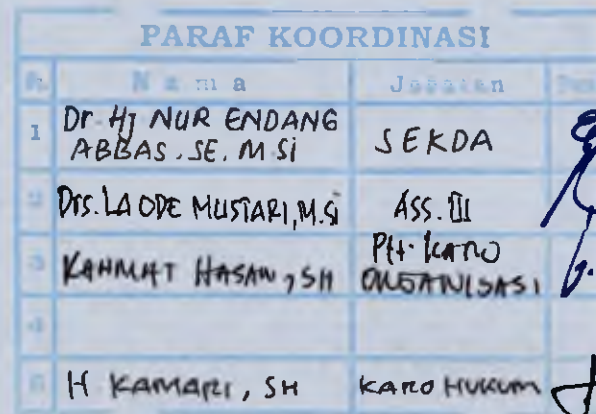 PARAF KOORDINASI
Nama Jabatan
1 Dr. Hj NUR ENDANG ABBAS. SE. M Si SEKDA
2 Drs. LA ODE MUSTARI, M.Si ASS. III
3 RAHMAT HASAN, SH Plt. KARO ORGANISASI
4
5 H KAMARI, SH KARO HUKUM